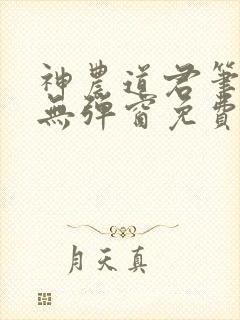 神農道君筆
無彈窗免費
月天真